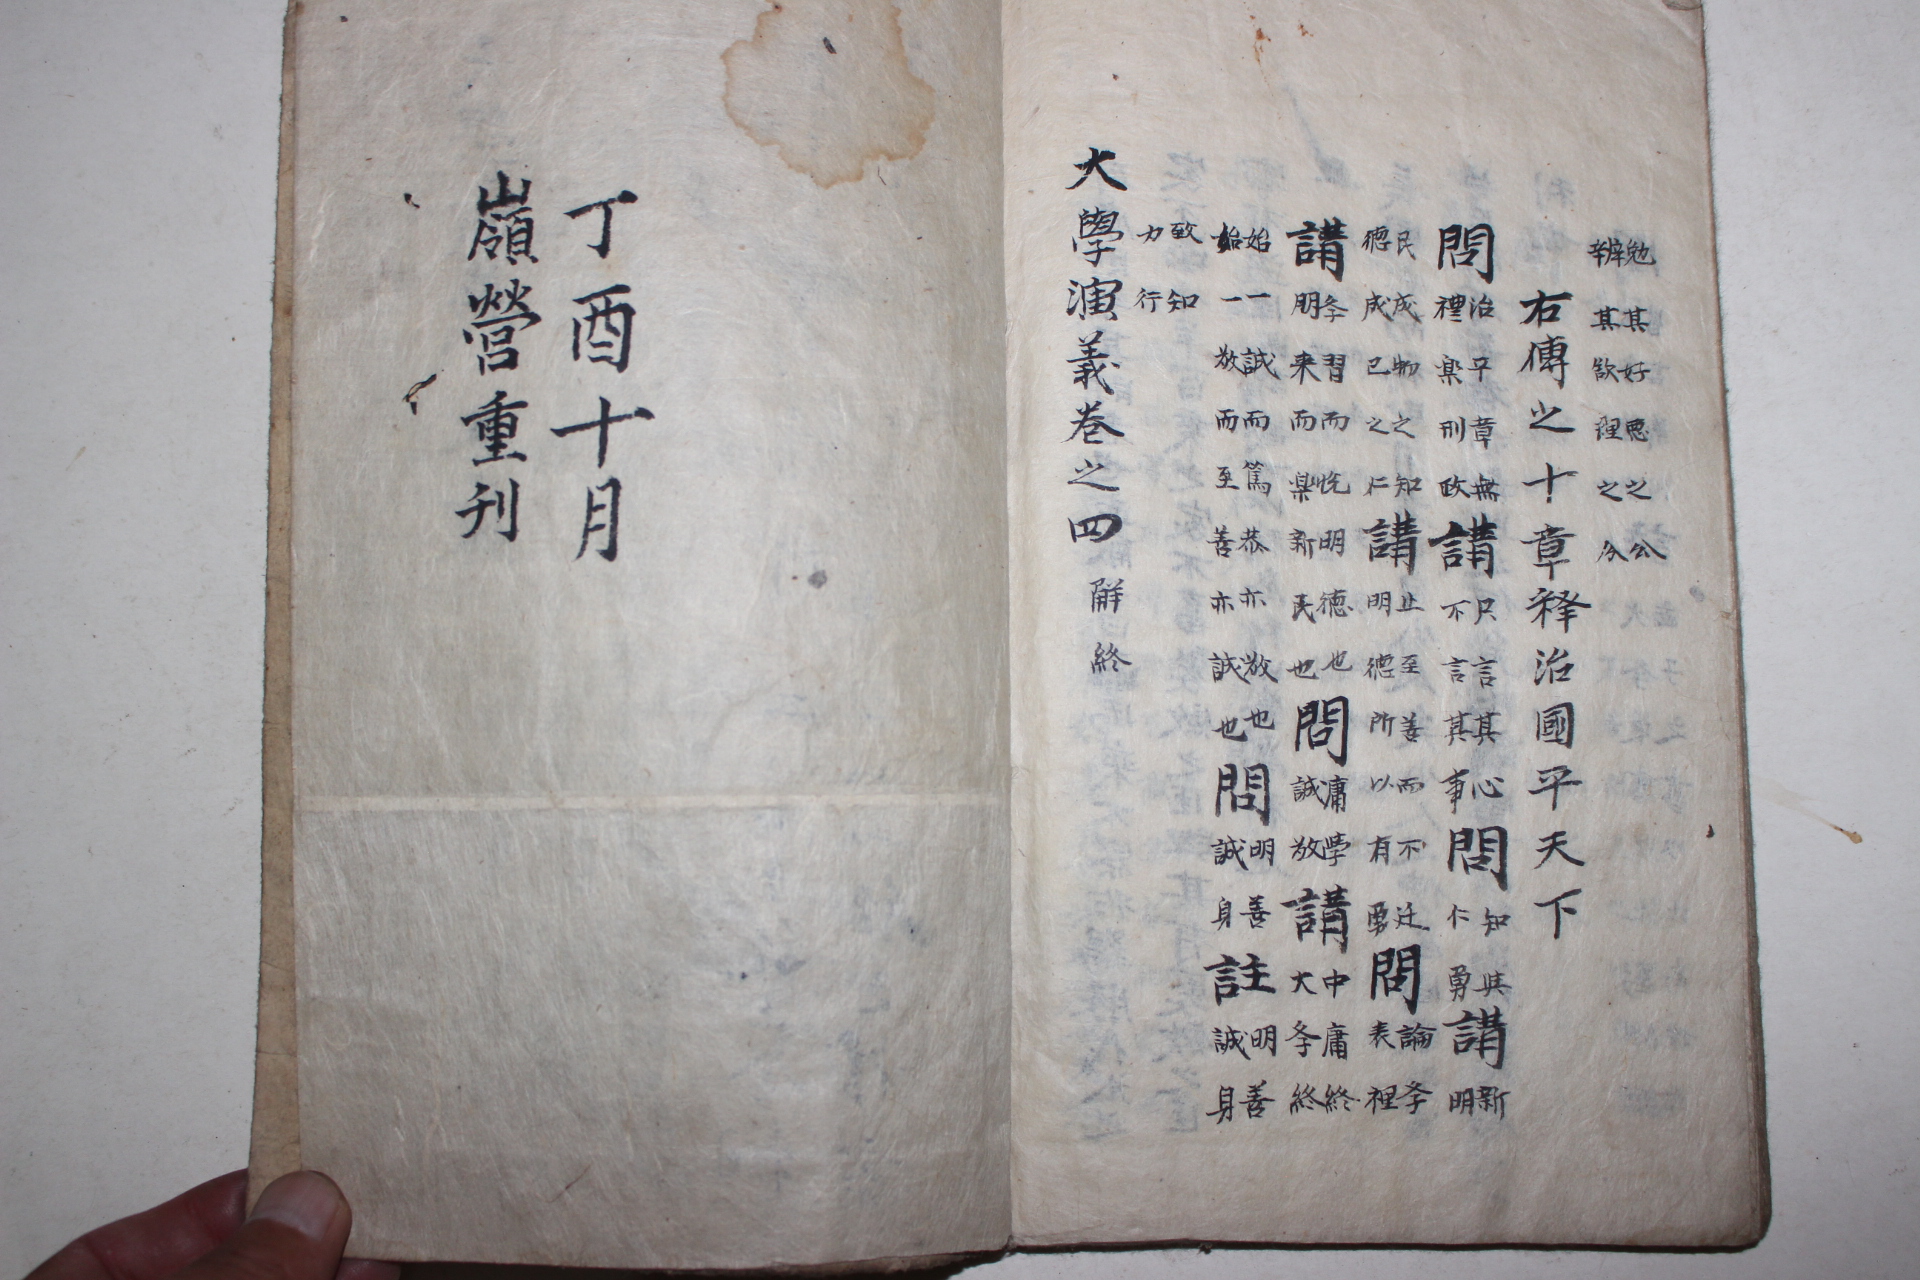 勉其好惡之公辨其欲理之分
右傳之十章釋治國平天下
問治平章無禮楽刑政講只言其心不言其事問知與仁勇講新明
民成物之知德成己之仁講止至善而不迁明德所以有勇問論斈表裡
講斈習而悅明德也朋来而楽新民也問庸學誠敬講中庸終大斈終
始一誠而篤恭亦敬也始一敬而至善亦誠也問明善誠身註明善誠身
致知力行
大學演義卷之四 解終
丁酉十月
嶺營重刊